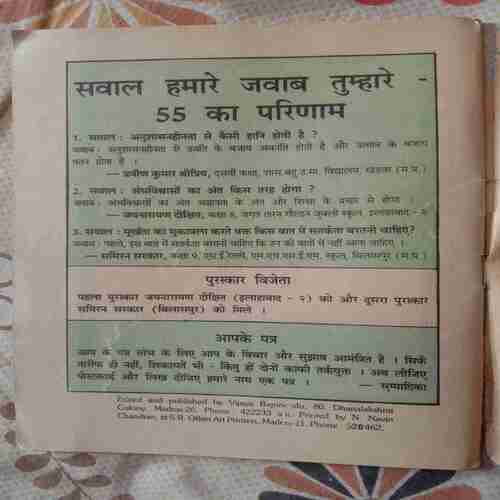 सवाल हमारे जवाब तुम्हारे -
55 का परिणाम
1. सवाल : अनुशासनहीनता से कैसी हानि होती है ?
जवाब : अनुशासनहीनता से उन्नति के बजाय अवनति होती है और उत्थान के बजाय
पतन होता है ।
— प्रवीण कुमार श्रोत्रिय, दसवीं कक्षा, विद्यालय, खंडवा (म.प्र.)
2. सवाल : अंधविश्वासों का अंत किस तरह होगा ?
जवाब : अंधविश्वासों का अंत अज्ञानता के अंत और शिक्षा के प्रचार से होगा ।
— जयनारायण दीक्षित, कक्षा 8, जगत तारन गोल्डन जुबली स्कूल, इलाहाबाद - २
3. सवाल : मूर्खता का मुकाबला करते वक्त किस बात में सतर्कता बरतनी चाहिए?
जवाब : पहले, इस बात में सतर्कता बरतनी चाहिए कि उन की बातों में नहीं आना चाहिए ।
— समिरन सरकार, स्कूल, बिलासपुर (म.प्र.)
पुरस्कार विजेता
पहला पुरस्कार जयनारायण दीक्षित (इलाहाबाद - २) को और दूसरा पुरस्कार
समिरन सरकार (बिलासपुर) को मिले ।
आपके पत्र
आप के पत्र स्तंभ के लिए आप के विचार और सुझाव आमंत्रित है । सिर्फ
तारीफ ही नहीं, शिकायतें भी - किंतु हों दोनों काफी तर्कयुक्त । अब लीजिए
पोस्टकार्ड और लिख दीजिए हमारे नाम एक पत्र । — सम्पादिका
Edited and published by Vijaya 80, Dhanalakshmi
Colony, Madras-26, Phone : 422233 Printed by N. Navin
Chandran, at S.B. Offset Art Printers, Madras-21. Phone : 528462.